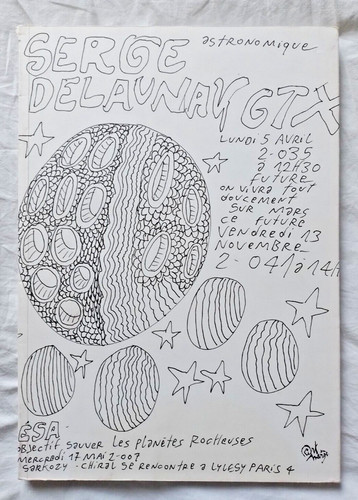 SERGE
astronomique
DELAUNAY GTX
LUNDI 5 AVRIL
2-035
à 12H30
FUTURE
on vivra tout
doucement
SUR MARS
CE FUTURE
VENDREDI 13
NOVEMBRE
2-041 à 14H
ESA-
objectif sauver les planètes Rocheuses
MERCREDI 17 MAI 2-007
Sarkozy-CHIRAL se rencontre à LYLESY PARIS 4